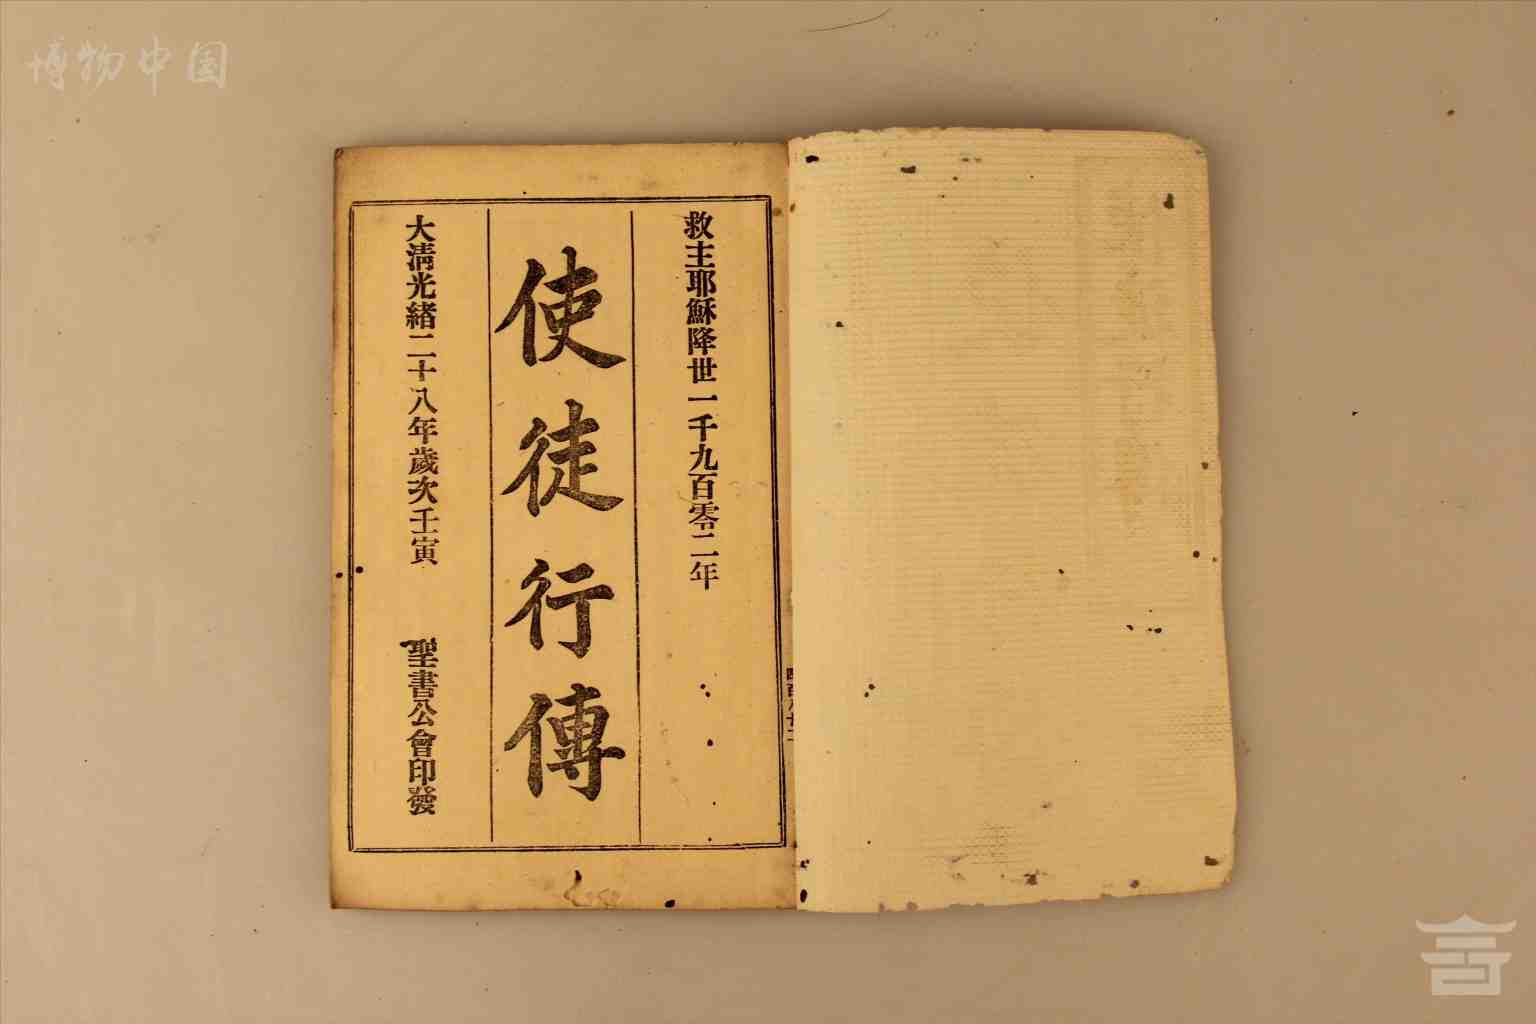 博物中国
救主耶穌降世一千九百零二年
使徒行傳
大清光緒二十八年歲次壬寅
聖書公會印發